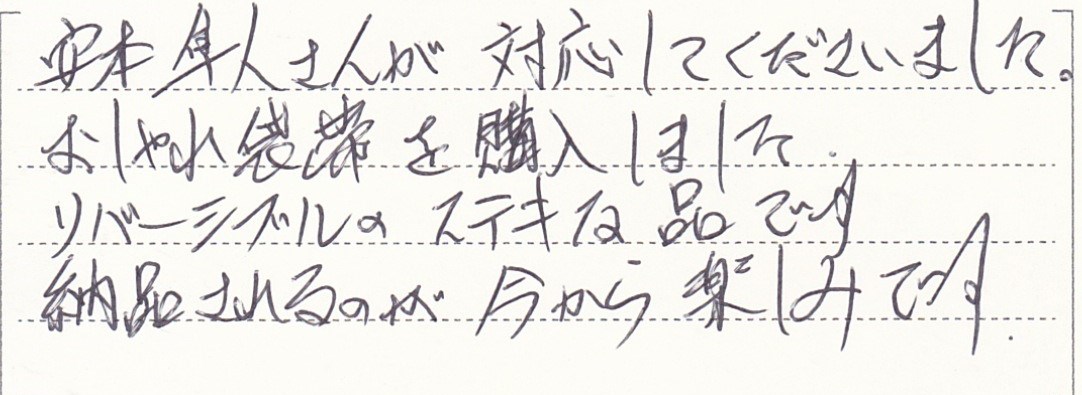 安本隼人さんが対応してくださいました。
おしゃれ袋帯を購入しました.
リバーシブルのステキな品です
納品されるのが今から楽しみです.